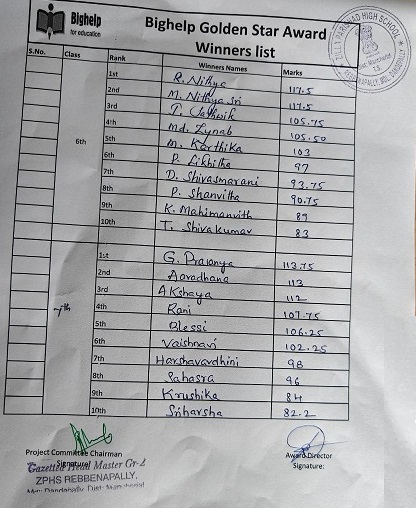 Bighelp
for education
Bighelp Golden Star Award
Winners list
S.No. Class Rank Winners Names Marks
6th
1st R. Nithya 117.5
2nd M. Nithya Sri 117.5
3rd T. 105.75
4th Md. Zynab 105.50
5th M. Karthika 103
6th P. Likhitha 97
7th D. Shivasmarani 93.75
8th P. Shanvitha 90.75
9th K. Mahimanvith 89
10th T. Shiva kumar 83
7th
1st G. Pranya 113.75
2nd Aaradhana 113
3rd Akshaya 112
4th Rani 107.75
5th Blessi 106.25
6th Vaishnavi 102.25
7th Harshavardhini 98
8th Sahasra 96
9th Krushika 84
10th Sriharsha 82.2
Project Committee Chairman
Signature:
Award Director
Signature:
Gazetted Head Master Gr-2
ZPHS REBBENAPALLY,
ZILLA PARISHAD HIGH SCHOOL